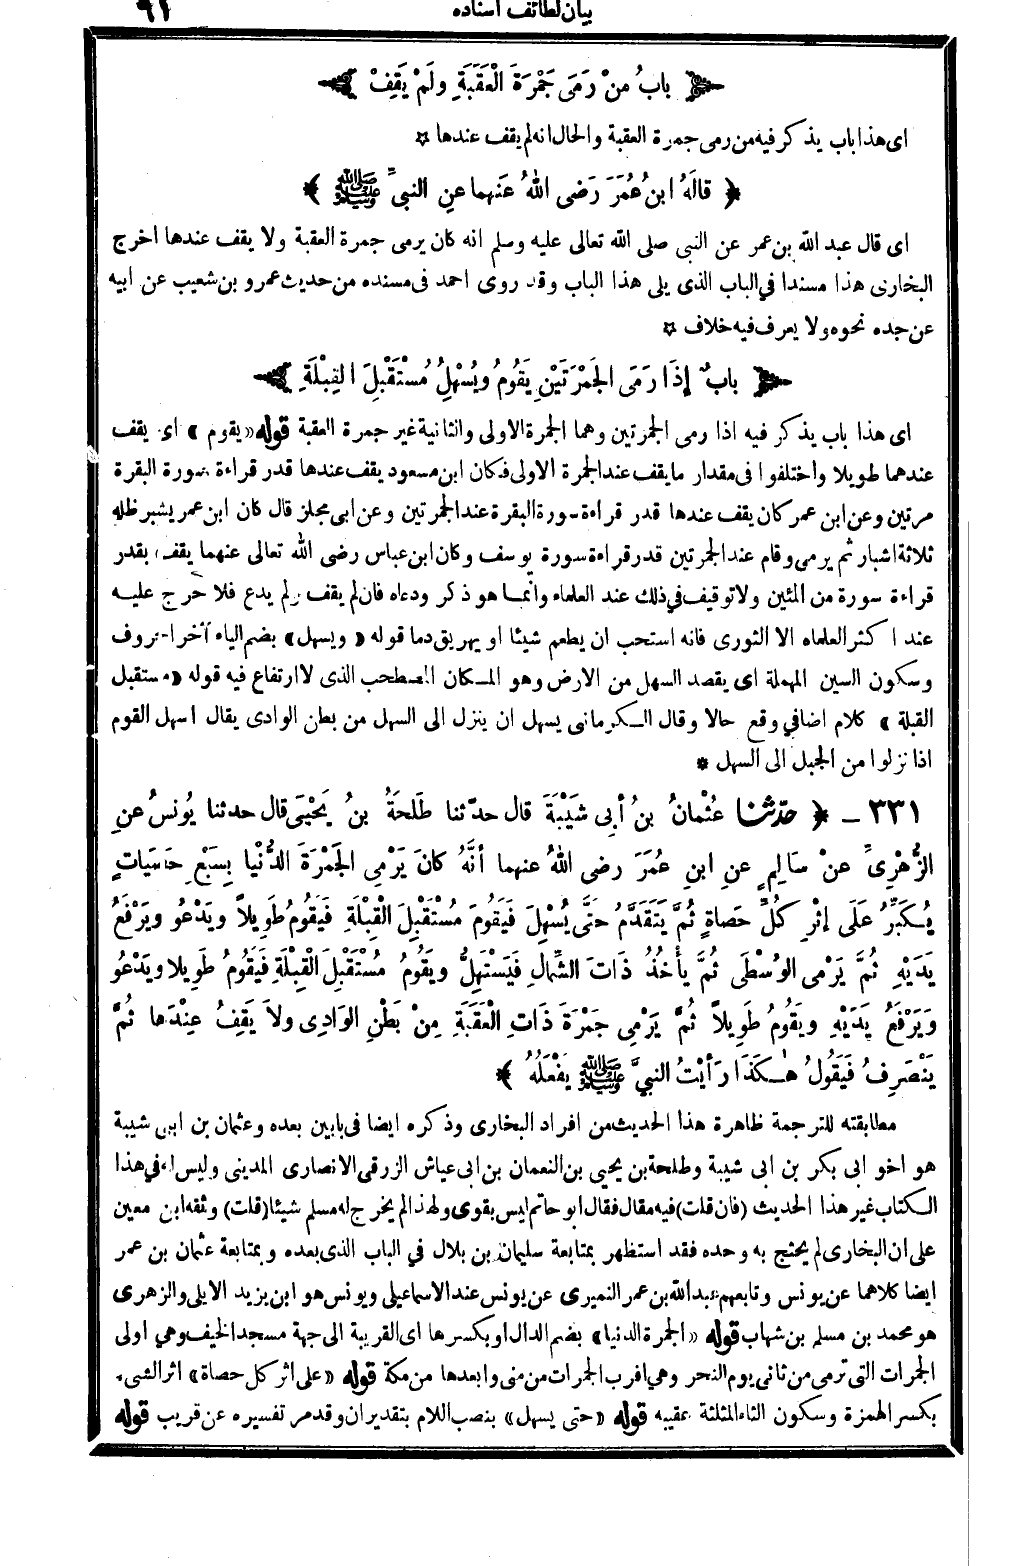 بيان لطائف اسناده ٩١
باب من رَمَى جَمْرَةَ الْعَقَبَةِ ولَمْ يَقِفْ
اى هذا باب يذكر فيه من رمى جمرة العقبة والحال انه لم يقف عندها ☆
﴿ قالَهُ ابنُ عُمَرَ رضى اللهُ عنهما عنِ النبىِّ ﷺ ﴾
اى قال عبد الله بن عمر عن النبى صلى الله تعالى عليه وسلم انه كان يرمى جمرة العقبة ولا يقف عندها اخرج
البخارى هذا مسندا في الباب الذى يلى هذا الباب وقد روى احمد فى مسنده من حديث عمرو بن شعيب عن ابيه
عن جده نحوه ولا يعرف فيه خلاف ☆
بابٌ إذَا رَمَى الجَمْرَتَيْنِ يَقُومُ ويُسْهِلُ مُسْتَقْبِلَ القِبْلَةِ
اى هذا باب يذكر فيه اذا رمى الجمرتين وهما الجمرة الاولى والثانية غير جمرة العقبة قوله «يقوم» اى يقف
عندهما طويلا واختلفوا فى مقدار ما يقف عند الجمرة الاولى فكان ابن مسعود يقف عندها قدر قراءة سورة البقرة
مرتين وعن ابن عمر كان يقف عندها قدر قراءة سورة البقرة عند الجمرتين وعن ابى مجلز قال كان ابن عمر يشبر ظله
ثلاثة اشبار ثم يرمى وقام عند الجمرتين قدر قراءة سورة يوسف وكان ابن عباس رضى الله تعالى عنهما يقف بقدر
قراءة سورة من المئين ولا توقيف في ذلك عند العلماء وانما هو ذكر ودعاء فان لم يقف ولم يدع فلا حرج عليه
عند اكثر العلماء الا الثورى فانه استحب ان يطعم شيئا او يهريق دما قوله «ويسهل» بضم الياء آخر الحروف
وسكون السين المهملة اى يقصد السهل من الارض وهو المكان المصطحب الذى لا ارتفاع فيه قوله «مستقبل
القبلة» كلام اضافي وقع حالا وقال الكرمانى يسهل ان ينزل الى السهل من بطن الوادى يقال اسهل القوم
اذا نزلوا من الجبل الى السهل *
٣٣١ - ﴿ حدثنا عُثْمانُ بنُ أبى شَيْبَةَ قال حدّثنا طَلحةُ بنُ يَحْيَى قال حدثنا يُونسُ عنِ
الزُّهْرِىِّ عنْ سَالِمٍ عنِ ابنِ عُمَرَ رضى اللهُ عنهما أنَّهُ كانَ يَرْمِى الجَمْرَةَ الدُّنْيا بِسَبْعِ حَصَيَاتٍ
يُكَبِّرُ عَلَى إثْرِ كُلِّ حَصاةٍ ثُمَّ يَتَقَدَّمُ حتَّى يُسْهِلَ فَيَقُومَ مُسْتَقْبِلَ الْقِبْلَةِ فَيَقُومُ طَوِيلاً ويَدْعُو ويَرْفَعُ
يَدَيْهِ ثُمَّ يَرْمِى الوُسْطَى ثُمَّ يأْخُذُ ذَاتَ الشِّمالِ فَيَسْتَهِلُّ ويَقُومُ مُسْتَقْبِلَ الْقِبْلَةِ فَيَقُومُ طَوِيلا ويَدْعُو
وَيَرْفَعُ يَدَيْهِ ويَقُومُ طَوِيلاً ثُمَّ يَرْمِى جَمْرَةَ ذَاتِ الْعَقَبَةِ مِنْ بَطْنِ الوَادِى ولاَ يَقِفُ عِنْدَها ثُمَّ
يَنْصَرِفُ فَيَقُولُ هٰكَذَا رَأيْتُ النبىَّ ﷺ يَفْعَلُهُ ﴾
مطابقته للترجمة ظاهرة هذا الحديث من افراد البخارى وذكره ايضا فى بابين بعده وعثمان بن ابى شيبة
هو اخو ابى بكر بن ابى شيبة وطلحة بن يحيى بن النعمان بن ابى عياش الزرقى الانصارى المدينى وليس له في هذا
الكتاب غير هذا الحديث (فان قلت) فيه مقال فقال ابو حاتم ليس بقوى ولهذا لم يخرج له مسلم شيئا (قلت) وثقه ابن معين
على ان البخارى لم يحتج به وحده فقد استظهر بمتابعة سليمان بن بلال في الباب الذى بعده وبمتابعة عثمان بن عمر
ايضا كلاهما عن يونس وتابعهم عبد الله بن عمر النميرى عن يونس عند الاسماعيلى ويونس هو ابن يزيد الايلى والزهرى
هو محمد بن مسلم بن شهاب قوله «الجمرة الدنيا» بضم الدال او بكسرها اى القريبة الى جهة مسجد الخيف وهي اولى
الجمرات التى ترمى من ثانى يوم النحر وهي اقرب الجمرات من منى وابعدها من مكة قوله «على اثر كل حصاة» اثر الشىء
بكسر الهمزة وسكون الثاء المثلثة عقيبه قوله «حتى يسهل» بنصب اللام بتقدير ان وقد مر تفسيره عن قريب قوله